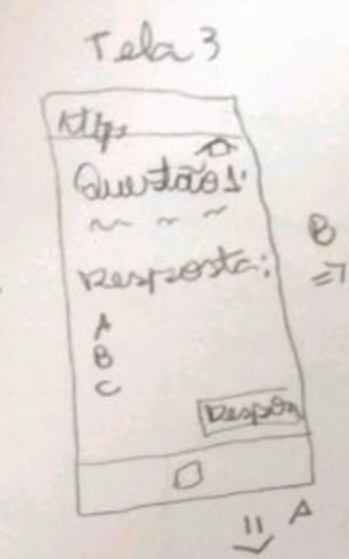 Tela 3
Https
Questão 1:
Resposta:
A
B
C
Respon
B
A